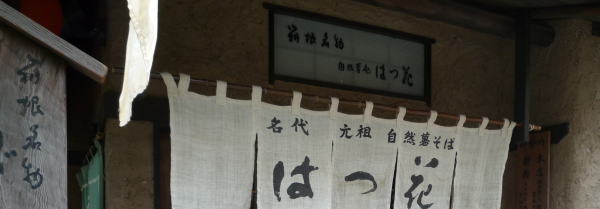 箱根名物
自然薯そば はつ花
名代 元祖 自然薯そば
はつ花
箱根名物
そば
本店